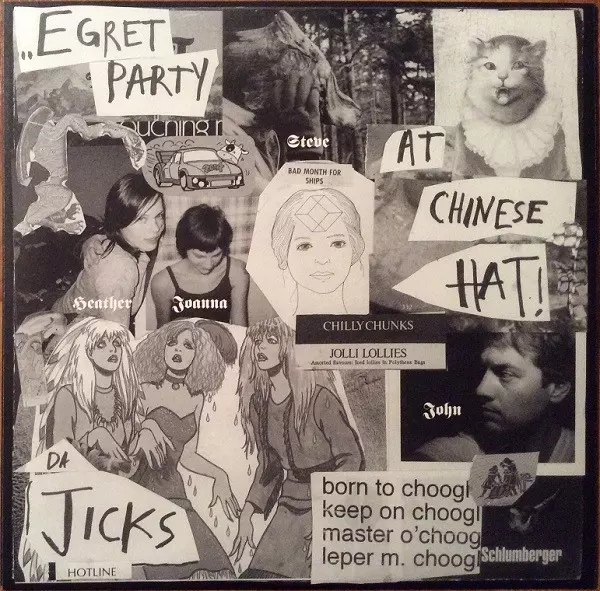 ..EGRET
PARTY
Steve
AT
BAD MONTH FOR
SHIPS
CHINESE
HAT!
Heather
Joanna
332
CHILLY CHUNKS
JOLLI LOLLIES
Assorted flavours: Iced lollies in Polythene Bags
John
DA
JICKS
HOTLINE
born to choogl
keep on choogl
master o'choog
leper m. choogl
Schlumberger